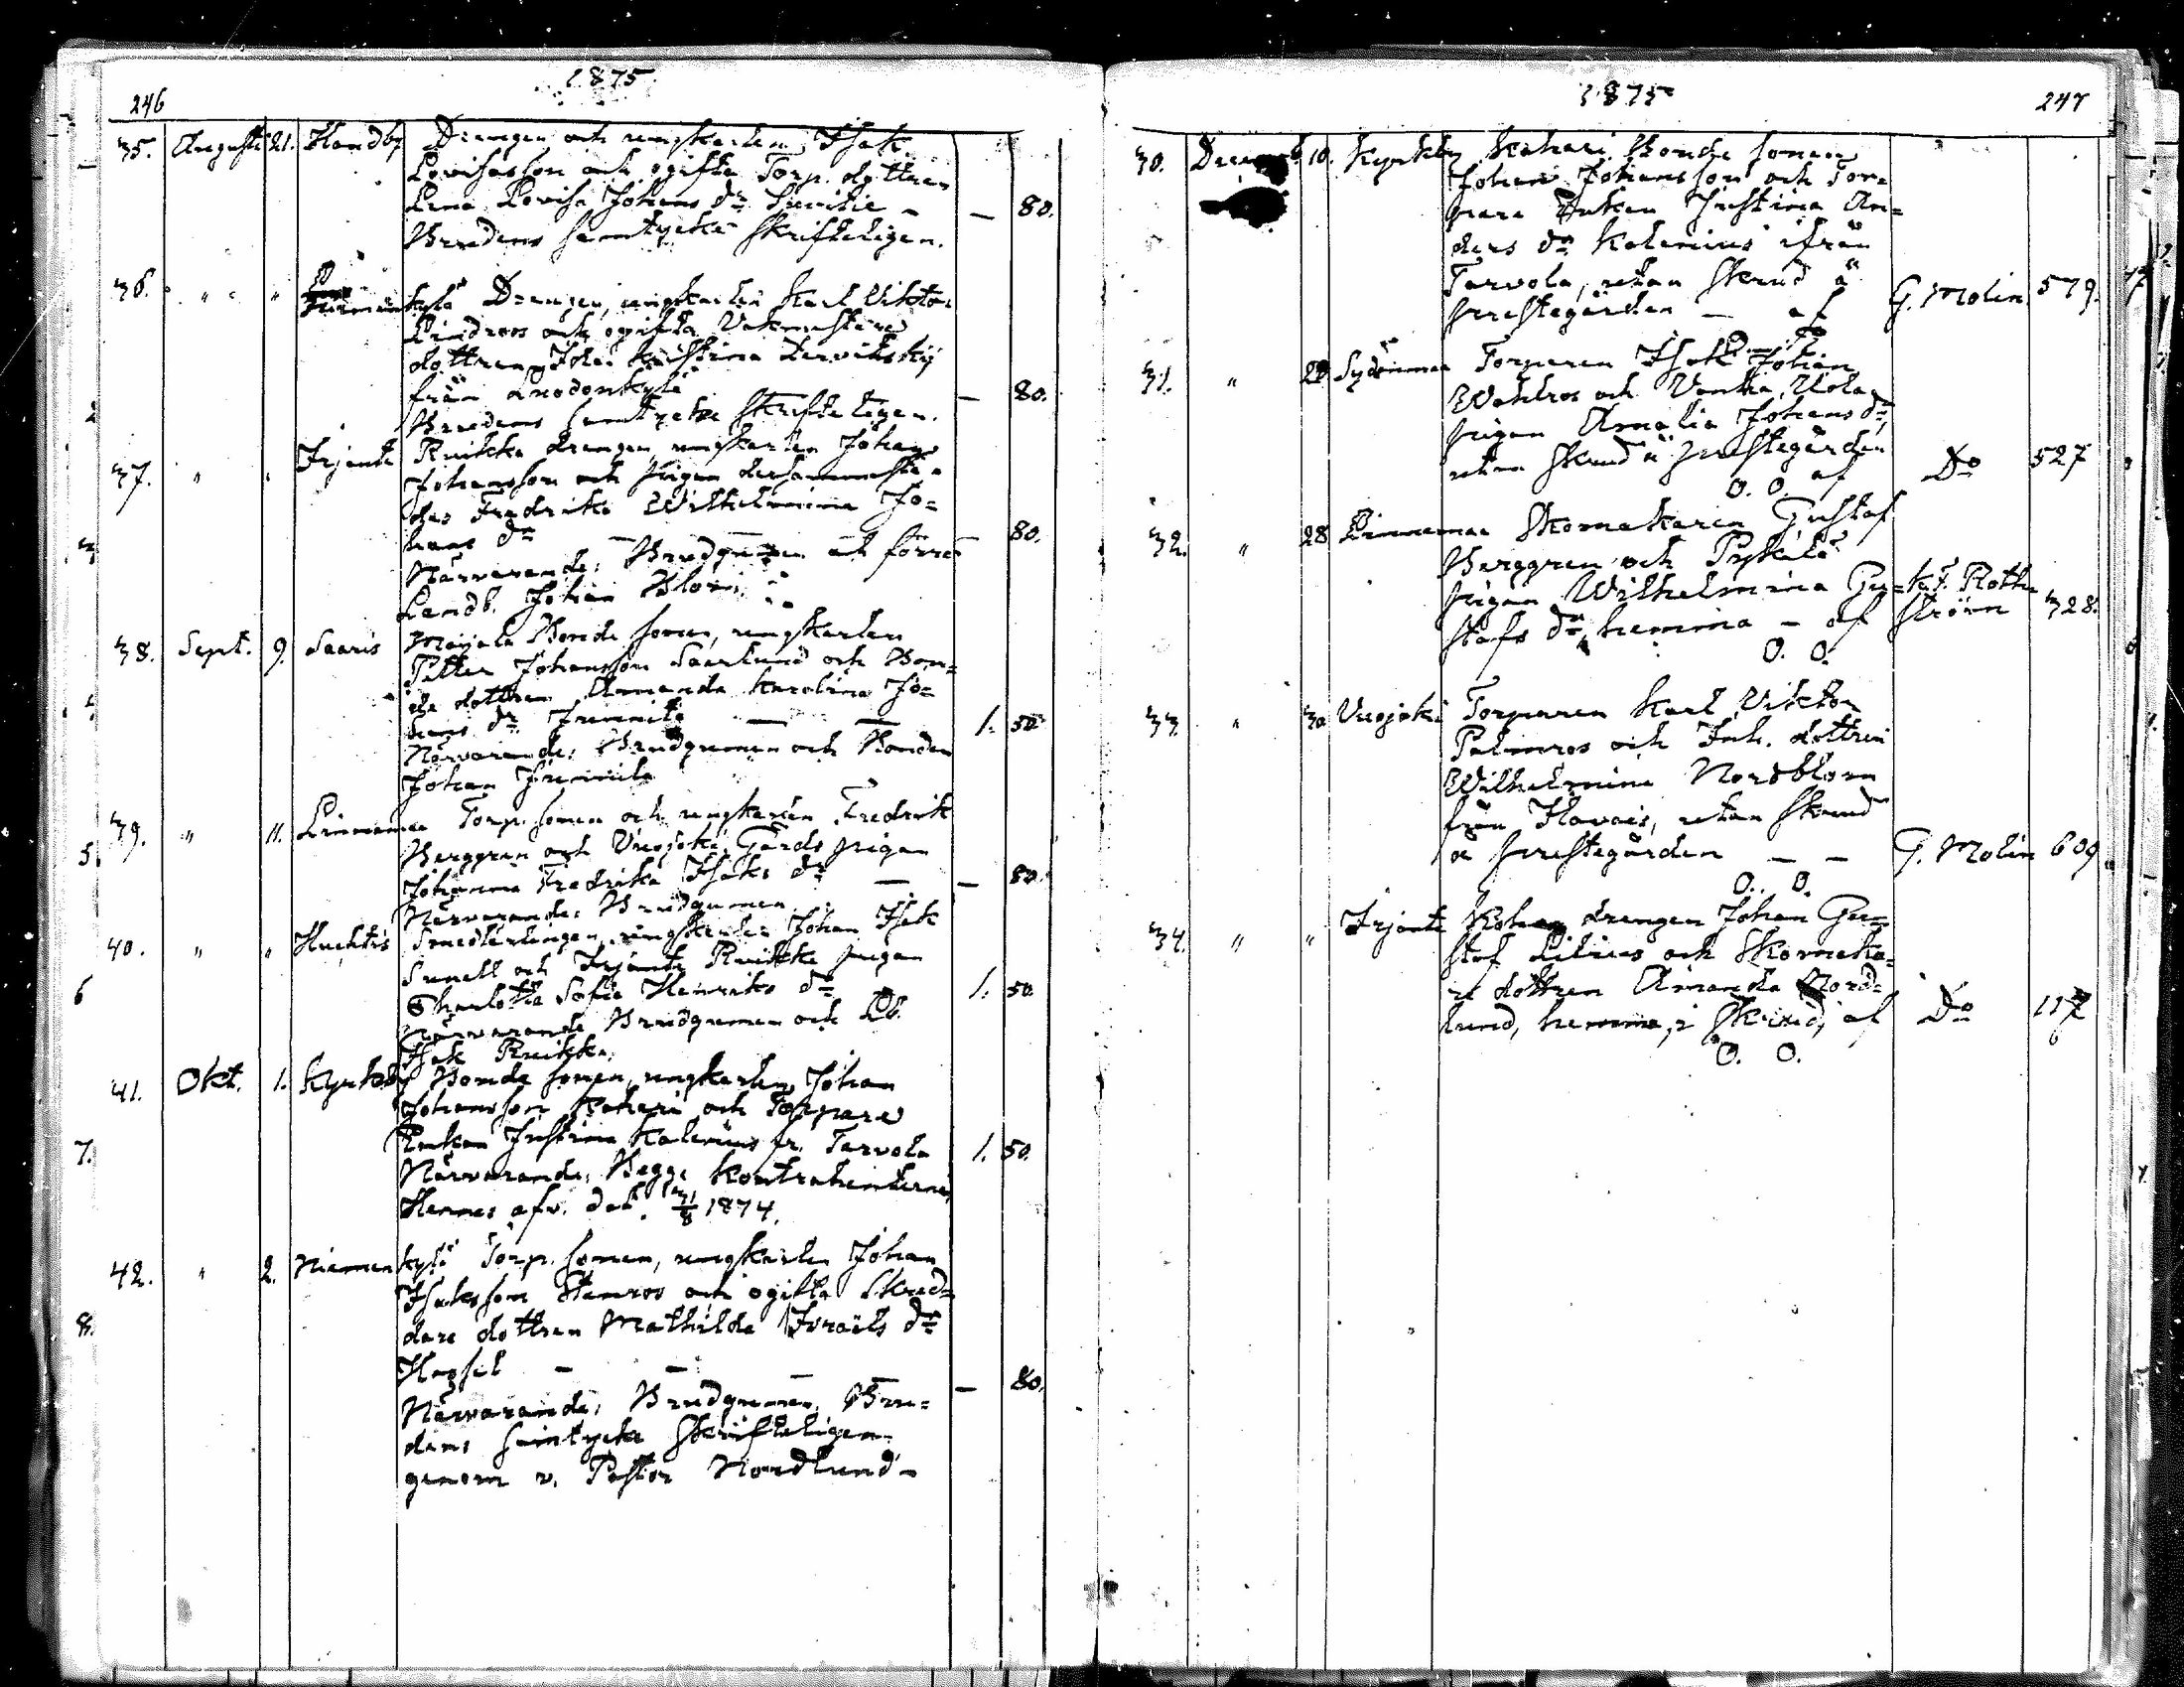 246
1875
35. Augusti 21. Handby Drengen och ungkarlen Isak
Lovisasson och ogifta Torp. dottren
Lena Lovisa Johans dr
— 80.
Brudens samtycke skrifteligen.
36. " " Niemenkylä Drengen, ungkarlen Karl Viktor
Lindroos och ogifta Vakmästare
dottren Ida Kristina
från
— 80.
Brudens samtycke skrifteligen.
37. " " Irjante Ruikka drengen, ungkarlen Johan
Johansson och pigan dersammastä-
des Fredrika Wilhelmina Jo=
hans dr — — 80.
Närvarande: Brudgummen och förre
Landb. Johan Blom
38. Sept. 9. Saaris Maijala Bonde sonen, ungkarlen
Petter Johansson Saarlund och Bon=
de dottren Amanda Karolina Jo=
hans dr — — 1. 50
Närvarande: Brudgummen och Bonden
Johan
39. " 11. Linnamaa Torp. sonen och ungkarlen Fredrik
Berggren och Vuojoki Gårds pigan
Johanna Fredrika Isaks dr — — 80.
Närvarande: Brudgummen
40. " " Huchtis Smedlärlingen, ungkarlen Johan Isak
Sunell och Irjante Ruikka pigan
Charlotta Sofia Henriks dr 1. 50
Närvarande Brudgummen och Lb.
Isak Ruikka.
41. Okt. 1. Kyrkoby Bonde sonen, ungkarlen Johan
Johansson Kahari och Torpare
Enkan Justina Kalenius fr. Tarvola 1. 50.
Närvarande, Begge Kontrahenterne,
Hennes afv. dat. 31/8 1874.
42. " 2. Niemenkylä Torp. sonen, ungkarlen Johan
Isaksson Stenros och ogifta Skräd=
dare dottren Mathilda Israels dr
— — — — 80.
Närvarande: Brudgummen, Bru=
dens samtycke skrifteligen
genom v. Pastor Nordlund
1875
247
30. Decemb. 10. Kyrkby Kahari Bonde sonen
Johan Johansson och Tor=
pare Enkan Justina An=
ders dr Kalenius ifrån
Tarvola, utan skrud å
prestegården — af G. Molin 579.
31. " Sydänmaa Torparen Isak Johan
Wahlros och
pigan Amalia Johans dr
utan skrud å prestegården
O. O. af Do 527
32. " 28 Linnamaa Skomakaren Gustaf
Berggren och
pigan Wilhelmina Gu=
stafs dr, hemma — af K. F. Rothström 328.
O. O.
33. " 30 Vuojoki Torparen Karl Viktor
Palmros och Inh. dottren
Wilhelmina Nordblom
från Hävais, utan skrud
å prestegården — — G. Molin 609
O. O.
34. " " Irjante drengen Johan Gu=
staf Lilius och Skomaka=
re dottren Amanda Nord=
lund, hemma, i skrud, af Do 117
O. O.